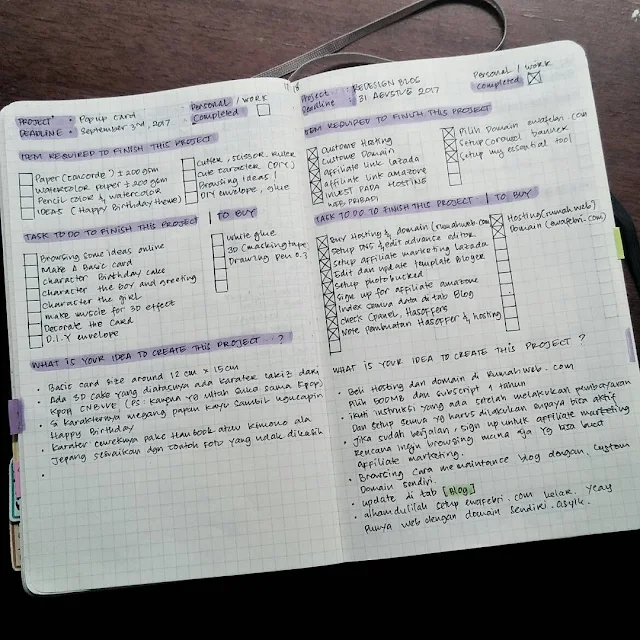 PROJECT : Popup Card
PERSONAL / WORK
DEADLINE : September 3rd, 2017
Completed
ITEM REQUIRED TO FINISH THIS PROJECT
Paper (concorde) ± 200 gsm
Watercolor paper ± 200 gsm
Pencil color & watercolor
IDEAS (Happy Birthday theme)
Cutter, scissor, ruler
Browsing Ideas
DIY envelope, glue
TASK TO DO TO FINISH THIS PROJECT
TO BUY
Browsing some ideas online
Make A Basic card
Character Birthday cake
Character the boy and greeting
Character the girl
make muscle for 3D effect
Decorate the card
D.I.Y envelope
white glue
3D (masking tape
Drawing pen 0.3
WHAT IS YOUR IDEA TO CREATE THIS PROJECT ?
• Basic card size around 12 cm x 15 cm
• Ada 3D cake yang diatasnya ada karakter dari
Kpop CNBLUE (PS: karena yg ultah suka sama Kpop)
• Si karakternya megang papan kayu sambil ngucapin
Happy Birthday
• karakter ceweknya pake Hanbook atau kimono ala
Jepang sesuaikan dgn contoh foto yang udah dikasih
Project : REDESIGN BLOG
Personal / Work
Deadline : 31 AGUSTUS 2017
Completed
ITEM REQUIRED TO FINISH THIS PROJECT
Custome Hosting
Custome Domain
Affiliate link Lazada
Affiliate link amazone
INVEST PADA HOSTING
WEB PRIBADI
Pilih Domain ewafebri.com
Setup Carousel banner
Setup my essential tool
TASK TO DO TO FINISH THIS PROJECT
TO BUY
Buy Hosting & domain (rumahweb.com
Setup DNS & edit advance editor
Setup Affiliate marketing Lazada
Edit dan update template Bloger
Setup photobucked
Sign up for affiliate amazone
Index semua data di tab Blog
Check Cpanel, Hasoffers
Note pembuatan Hasoffer & hosting
Hosting (rumahweb)
Domain (ewafebri.com)
WHAT IS YOUR IDEA TO CREATE THIS PROJECT ?
• Beli Hosting dan domain di Rumahweb.com
Pilih 600MB dan subscript 1 tahun
• Ikuti instruksi yang ada setelah melakukan pembayaran
Dan setup semua yg harus dilakukan supaya bisa aktif
• Jika sudah berjalan, sign up untuk affiliate marketing
Rencana ingin browsing mana aja yg bisa buat
Affiliate marketing.
• Browsing Cara me maintance blog dengan Custom
Domain sendiri.
• update di tab [Blog]
• alhamdulilah setup ewafebri.com kelar. Yeay
Punya web dengan domain sendiri. asyik.